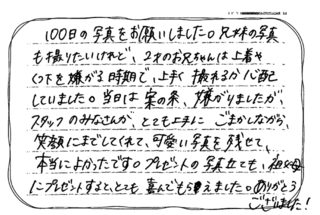 100日の写真をお願いしました。兄妹の写真
も撮りたいけれど、2才のお兄ちゃんは上着や
くつ下を嫌がる時期で、上手く撮れるか心配
していました。当日は案の条、嫌がりましたが、
スタッフのみなさんが、とても上手に ごまかしながら、
笑顔にまでしてくれて、可愛い写真を残せて、
本当によかったです。プレゼントの写真立ても、祖父母
にプレゼントすると、とても喜んでもらえました。ありがとう
ございました!